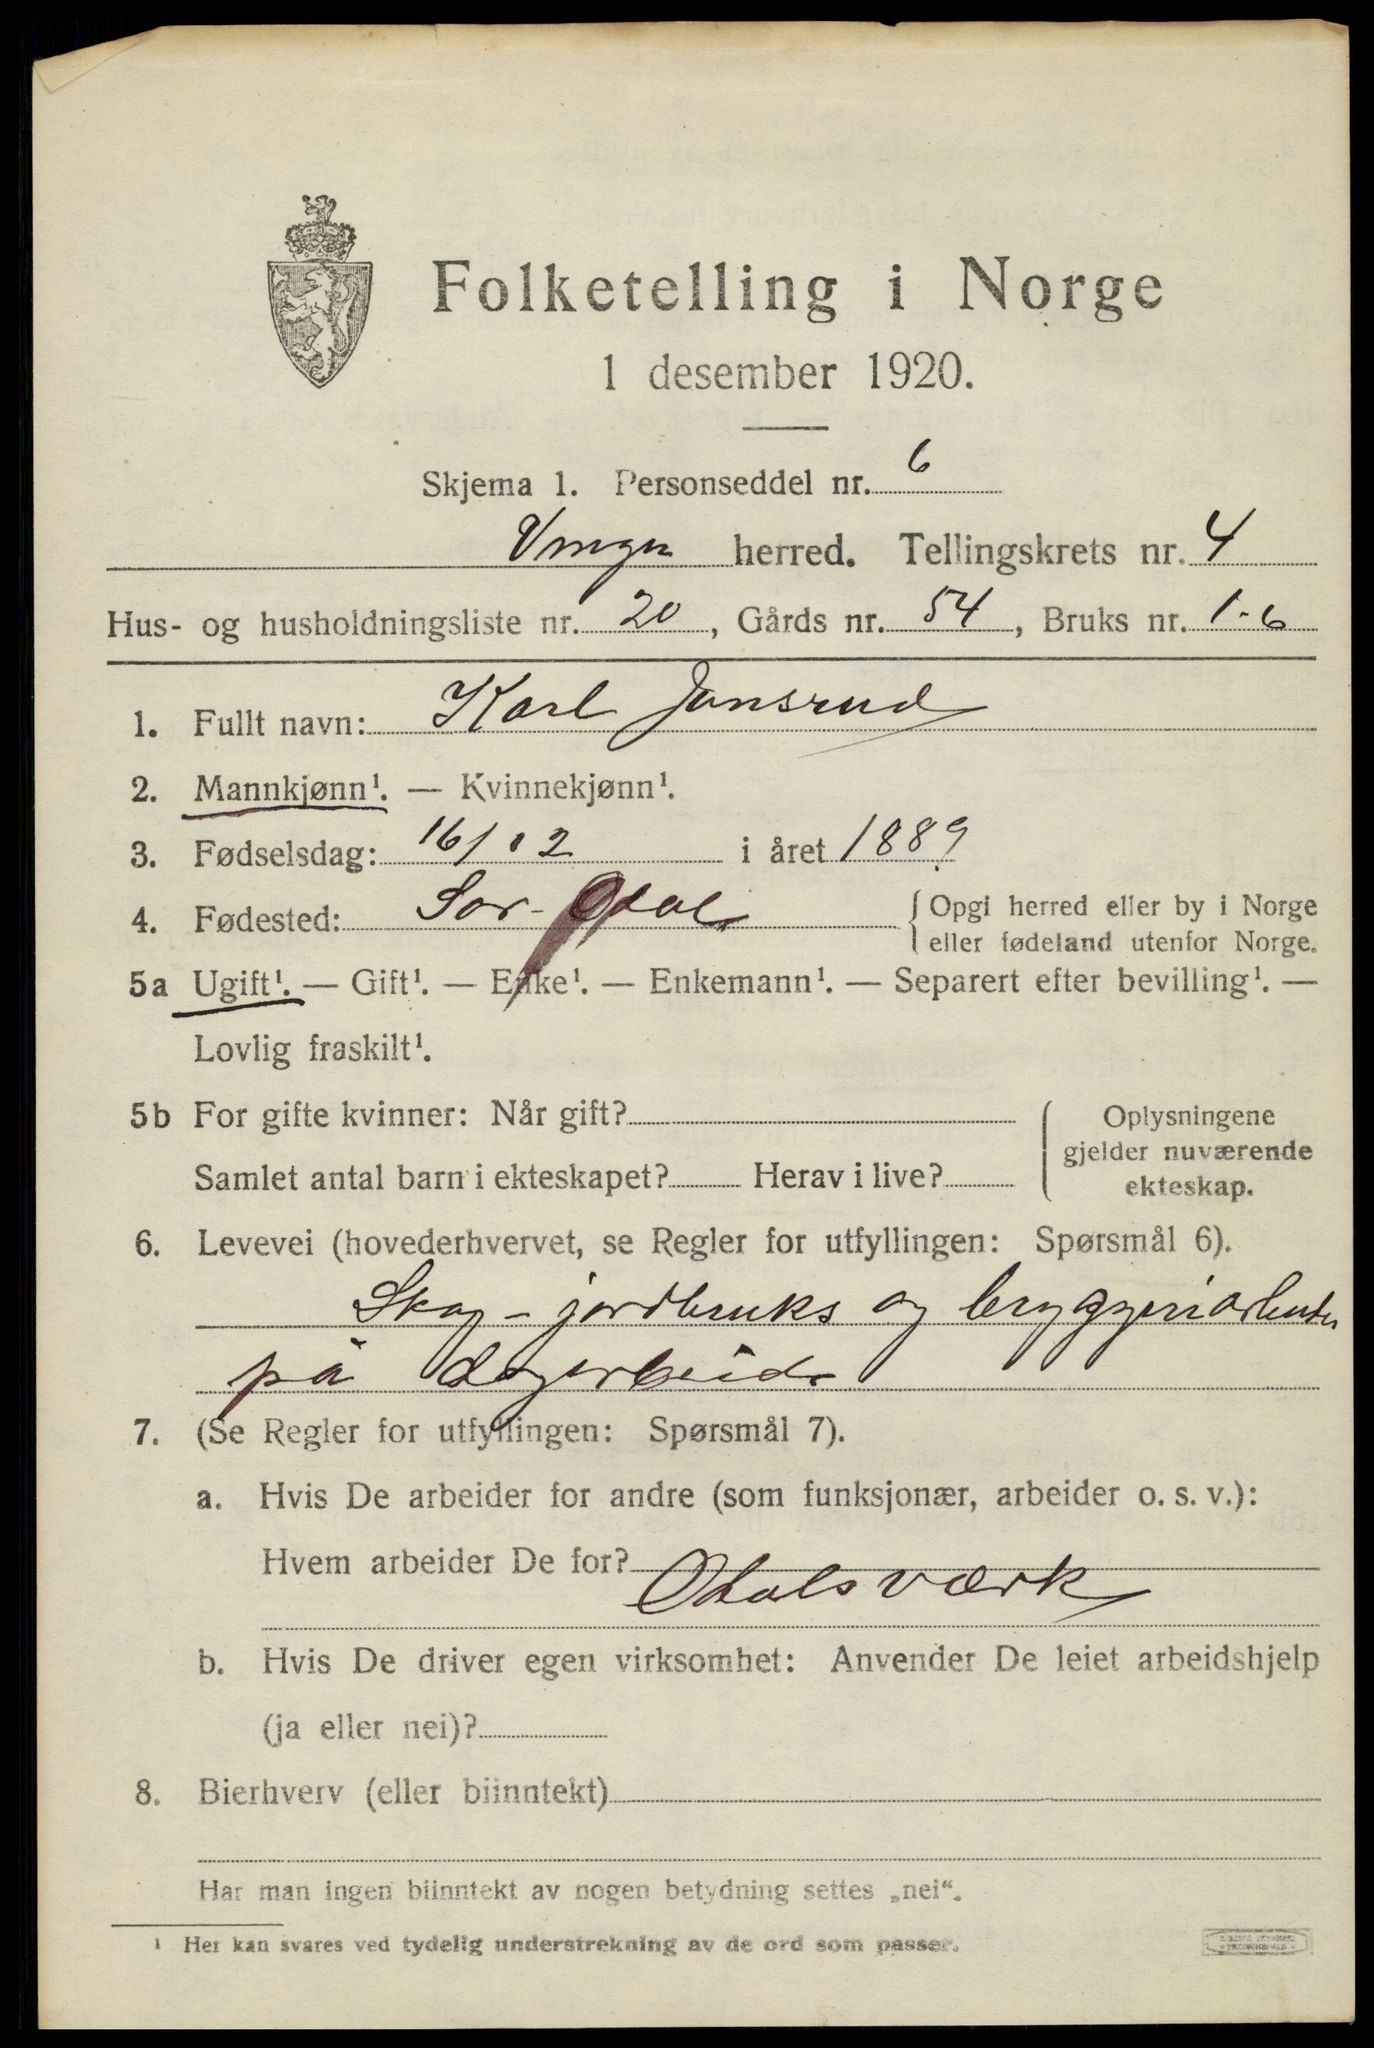 Folketelling i Norge
1 desember 1920.
Skjema 1. Personseddel nr. 6
Vinger herred. Tellingskrets nr. 4
Hus- og husholdningsliste nr. 20, Gårds nr. 54, Bruks nr. 1-6
1. Fullt navn: Karl Jansrud
2. Mannkjønn¹. — Kvinnekjønn¹.
3. Fødselsdag: 16/12 i året 1889
4. Fødested: Sør-Odal { Opgi herred eller by i Norge
eller fødeland utenfor Norge.
5a Ugift¹. — Gift¹. — Enke¹. — Enkemann¹. — Separert efter bevilling¹. —
Lovlig fraskilt¹.
5b For gifte kvinner: Når gift?
Samlet antal barn i ekteskapet? Herav i live?
{ Oplysningene
gjelder nuværende
ekteskap.
6. Levevei (hovederhvervet, se Regler for utfyllingen: Spørsmål 6).
Skog-jordbruks og bryggeriarbeider
på dagarbeide
7. (Se Regler for utfyllingen: Spørsmål 7).
a. Hvis De arbeider for andre (som funksjonær, arbeider o. s. v.):
Hvem arbeider De for?
Odalsværk
b. Hvis De driver egen virksomhet: Anvender De leiet arbeidshjelp
(ja eller nei)?
8. Bierhverv (eller biinntekt)
Har man ingen biinntekt av nogen betydning settes „nei“.
¹ Her kan svares ved tydelig understrekning av de ord som passer.